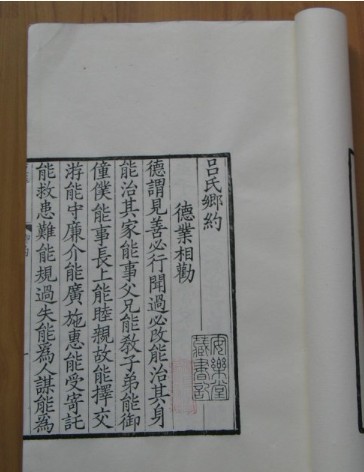 呂氏鄉約
德業相勸
德謂見善必行聞過必改能治其身
能治其家能事父兄能教子弟能御
僮僕能事長上能睦親故能擇交
游能守廉介能廣施惠能受寄託
能救患難能規過失能為人謀能為
安樂堂
藏書記